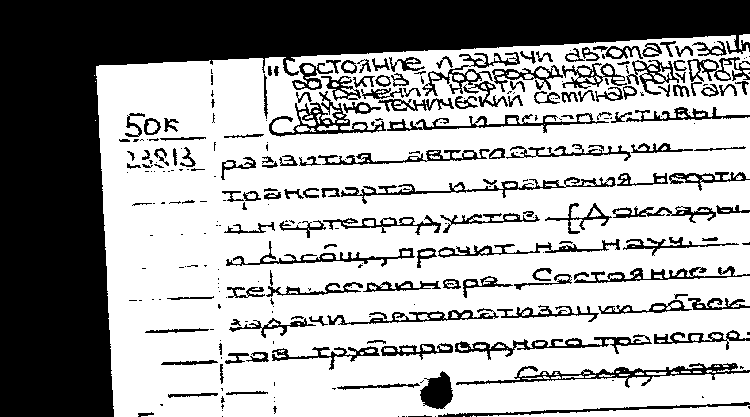 "Состояние и задачи автоматизаци
объектов трубопроводного транспорта
и хранения нефти и нефтепродуктов
научно-технический семинар. Сумгаит
1968
50к
Состояние и перспективы
23813
развития автоматизации
транспорта и хранения нефти
и нефтепродуктов [Доклады
и сообщ., прочит. на науч.-
техн. семинаре. Состояние и
задачи автоматизации объек
тов трубопроводного транспор-
См след карт.